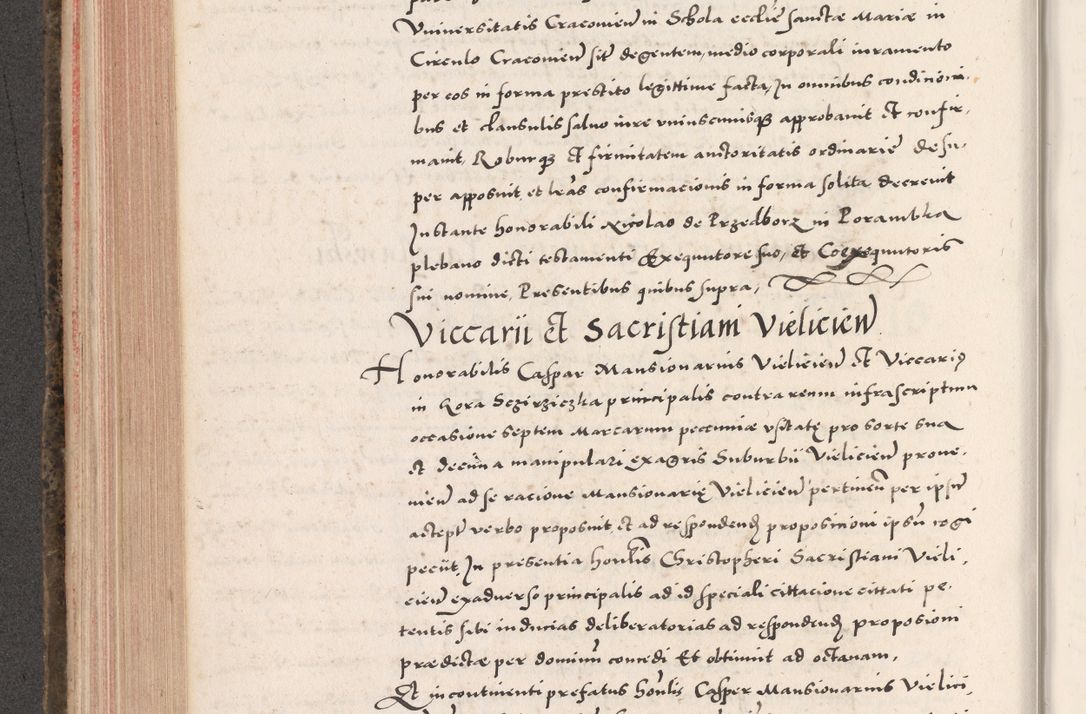 Vniuersitatis Cracouien in Schola eccliē sanctæ Mariæ in
Circulo Cracouien sit degentem, medio corporali iuramento
per eos in forma prestito legittime facta, In omnibus condicioni.
bus et clausulis saluo iure vniuscuiusq approbauit Et confir.
mauit, Roburq Et firmitatem auctoritatis ordinarie desu.
per apposuit, et lras confirmacionis in forma solita decreuit
Instante honorabili Nicolao de Przedborz in Porambka
plebano dicti testamenti Exequutore suo, et Coexequutoris
sui nomine, Presentibus quibus supra,
Viccarii Et Sacristiani Vielicien
Honorabilis Caspar Mansionarius Vielicien Et Viccarius
in Gora Sczirziczka principalis contra reum infrascriptum
occasione septem Marcarum pecuniæ vsitatę pro sorte sua
et decima manipulari ex agris Suburbii Vielicien proue.
nien ad se racione Mansionarię Vielicien pertinen per ipsum
accept verbo proposuit, et ad respondend proposicioni ipsum cogi
peciit, In presentia honlis Christopheri Sacristiani Vieli.
cien ex aduerso principalis ad id speciali cittacione cittati pe.
tentis sibi inducias deliberatorias ad respondend proposioni
prædictæ per dominum concedi Et obtinuit ad octauam,
Et incontinenti prefatus honlis Casper Mansionarius Vielici.